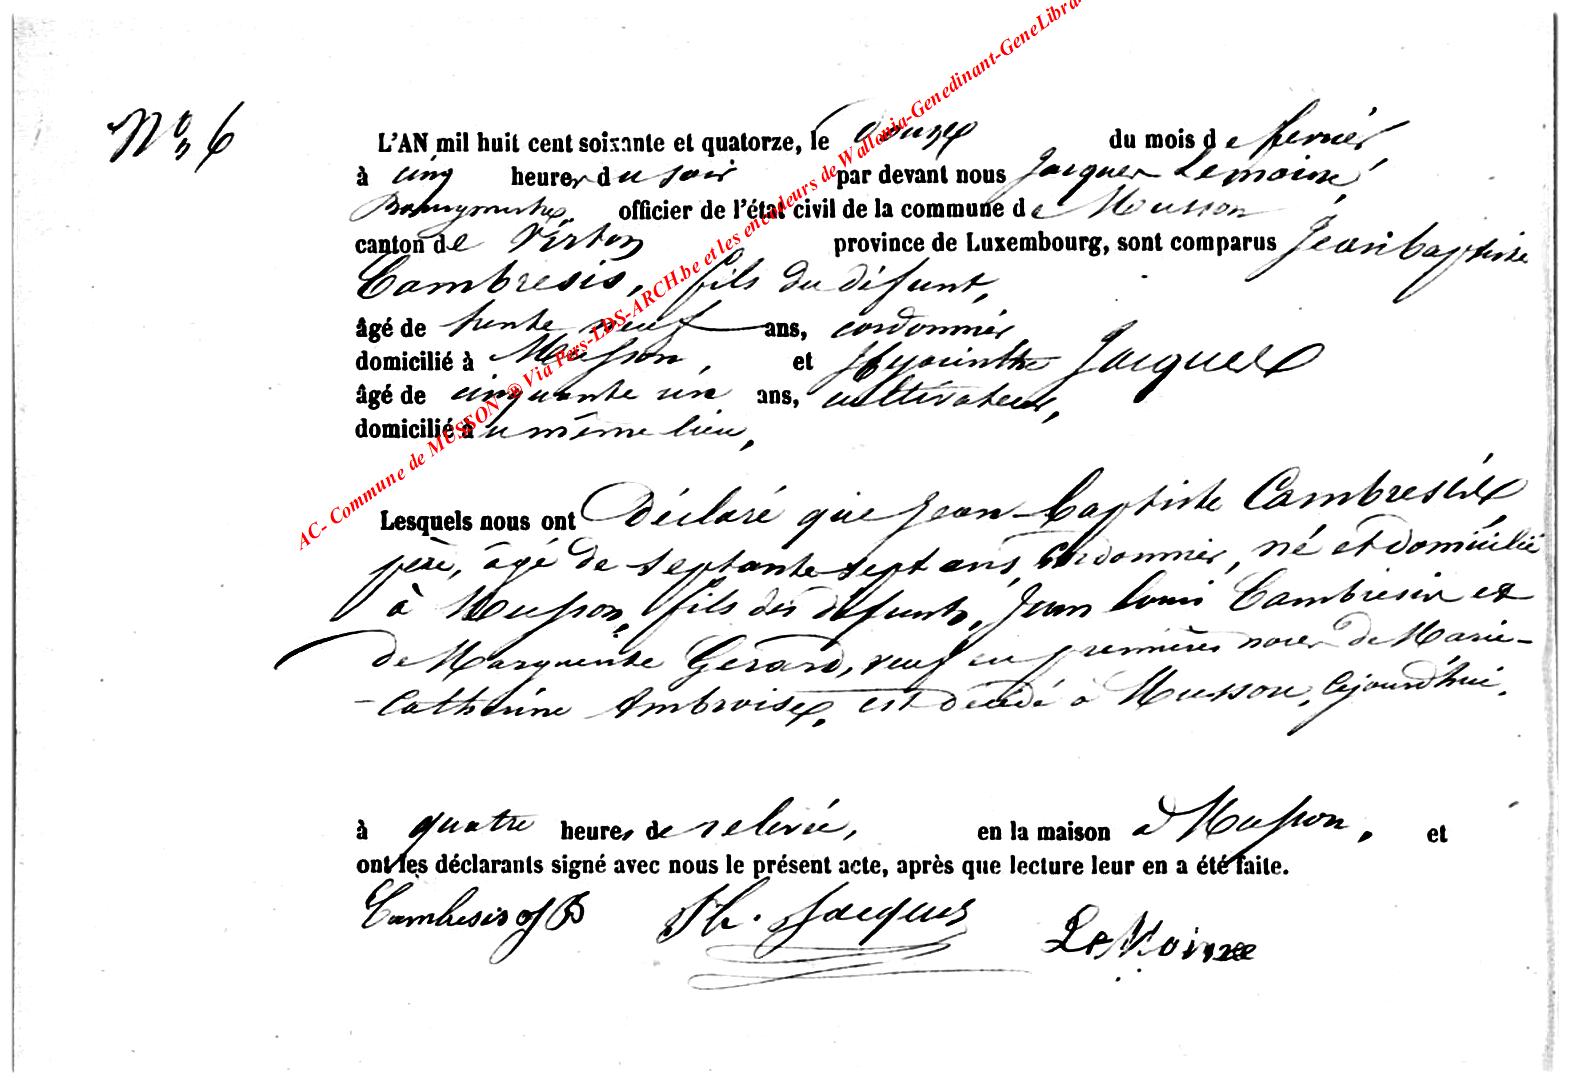 N° 6
L'AN mil huit cent soixante et quatorze, le douze du mois de février
à cinq heures du soir par devant nous Jacques Lemoine,
Bourgmestre, officier de l'état civil de la commune de Musson
canton de Virton province de Luxembourg, sont comparus Jean baptiste
Cambresis, fils du défunt,
âgé de trente neuf ans, cordonnier
domicilié à Musson, et Hyacinthe Jacques
âgé de cinquante un ans, cultivateur,
domicilié au même lieu,
Lesquels nous ont déclaré que Jean-baptiste Cambresis
père, âgé de septante sept ans, cordonnier, né et domicilié
à Musson, fils des défunts, Jean Louis Cambresis et
de Marguerite Gerard, veuf en premières noces de Marie-
-Catherine Ambroise, est décédé à Musson, cejourd'hui,
à quatre heures de relevée, en la maison à Musson, et
ont les déclarants signé avec nous le présent acte, après que lecture leur en a été faite.
Cambresis JB H. Jacques LeMoine
AC- Commune de MUSSON ® Via Pers-LDS-ARCH.be et les encodeurs de Wallonia-Genedinant-GeneLibra